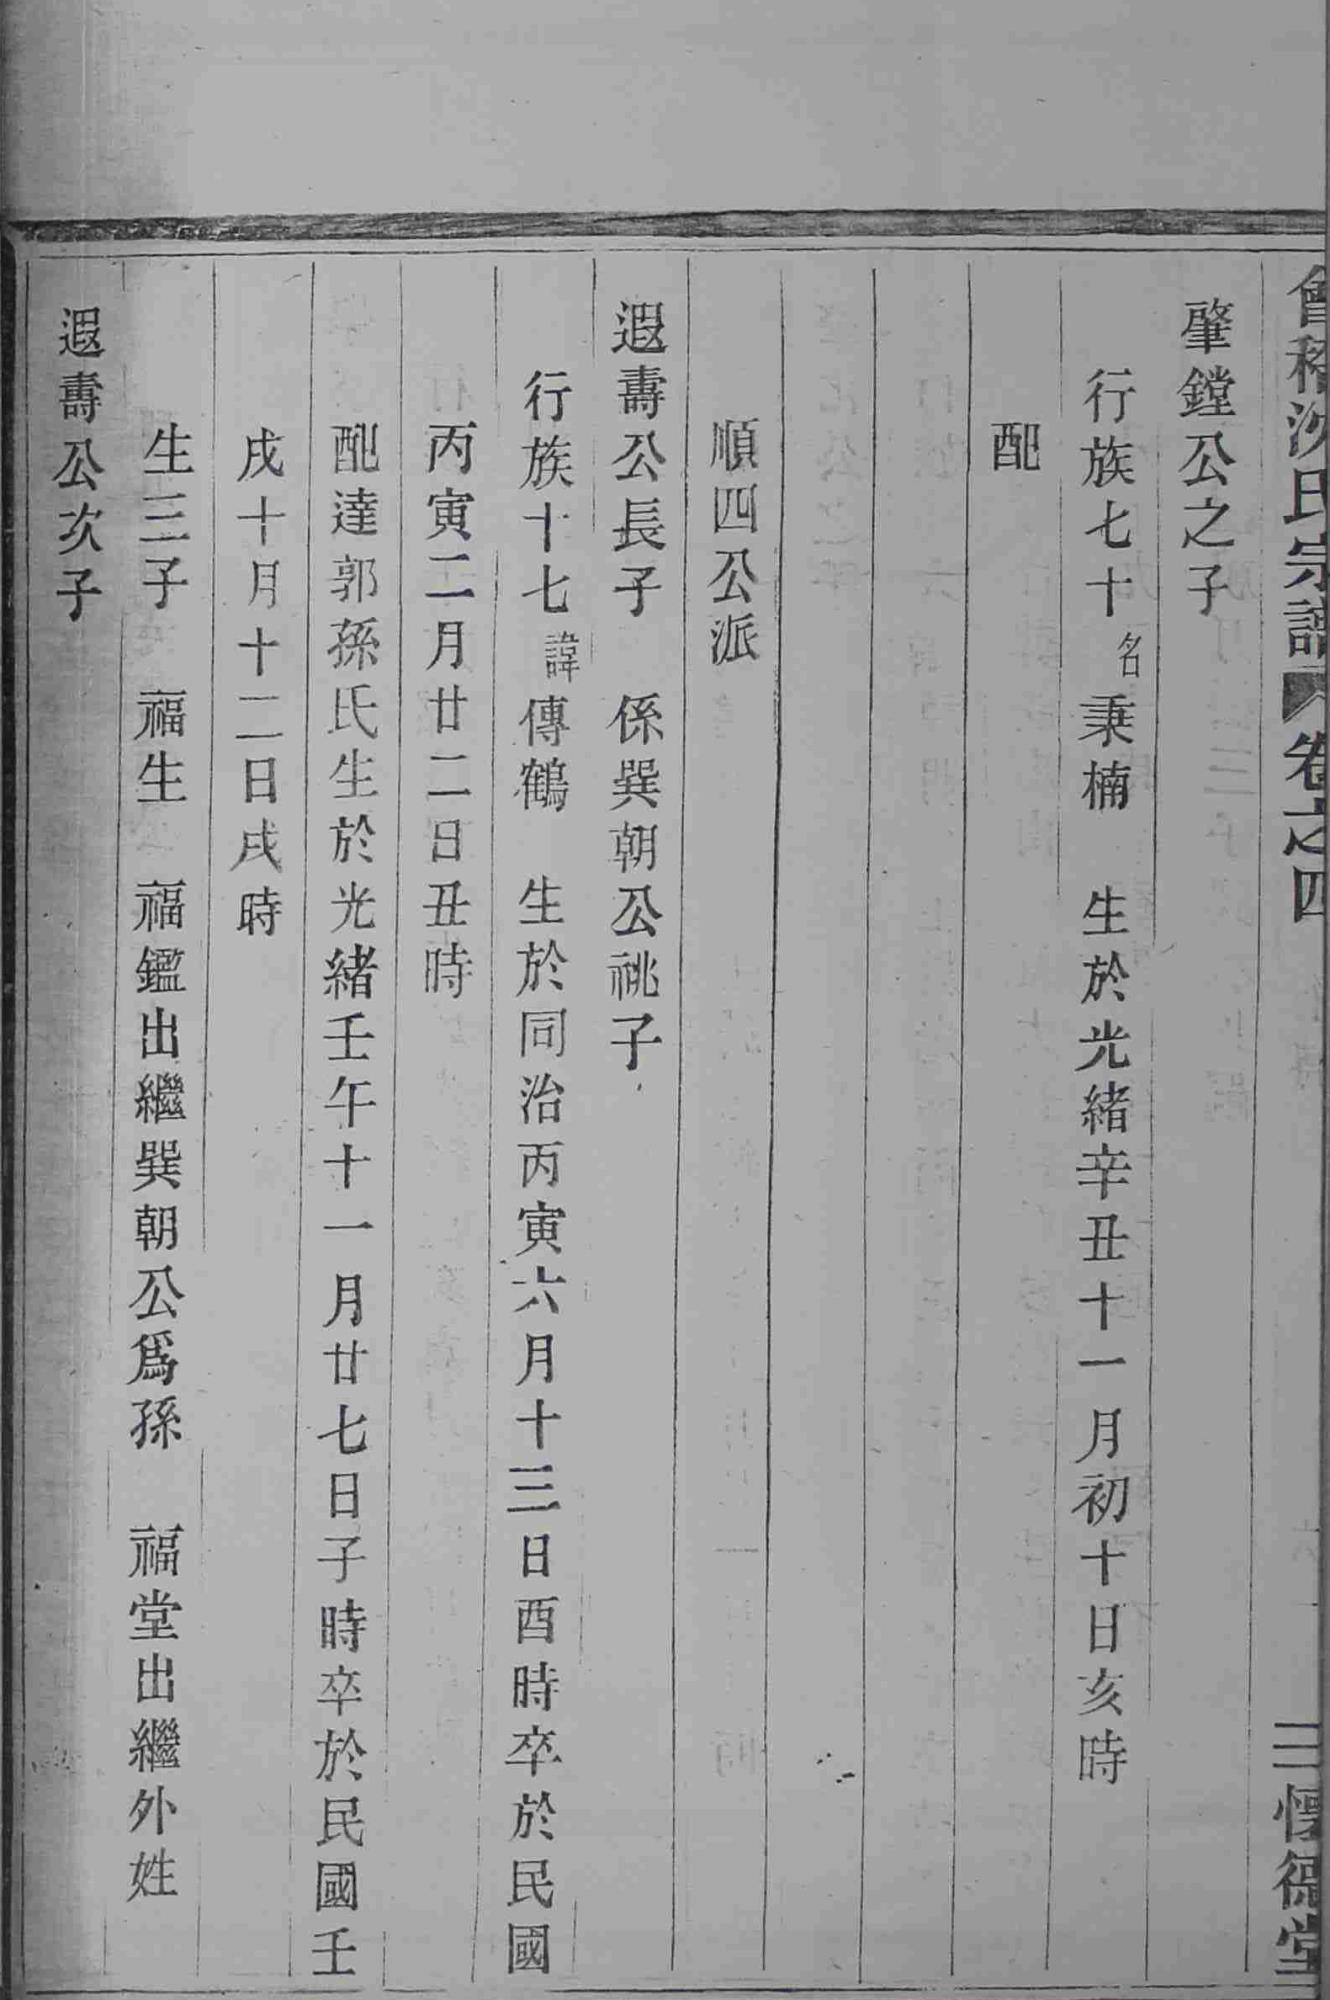 會稽沈氏宗譜 卷之四 三 懷德堂
肇鏜公之子
行族七十名秉楠 生於光緒辛丑十一月初十日亥時
配
順四公派
遐壽公長子 係巽朝公祧子
行族十七諱傳鶴 生於同治丙寅六月十三日酉時卒於民國
丙寅二月廿二日丑時
配達郭孫氏生於光緒壬午十一月廿七日子時卒於民國壬
戌十月十二日戌時
生三子 福生 福鑑出繼巽朝公爲孫 福堂出繼外姓
遐壽公次子